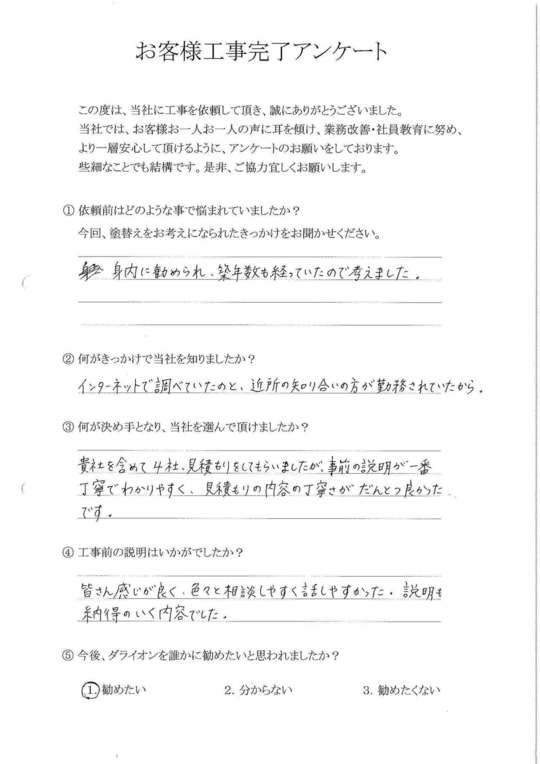 お客様工事完了アンケート
この度は、当社に工事を依頼して頂き、誠にありがとうございました。
当社では、お客様お一人お一人の声に耳を傾け、業務改善・社員教育に努め、
より一層安心して頂けるように、アンケートのお願いをしております。
些細なことでも結構です。是非、ご協力宜しくお願いします。
① 依頼前はどのような事で悩まれていましたか？
今回、塗替えをお考えになられたきっかけをお聞かせください。
身内に勧められ、築年数も経っていたので考えました。
② 何がきっかけで当社を知りましたか？
インターネットで調べていたのと、近所の知り合いの方が勤務されていたから。
③ 何が決め手となり、当社を選んで頂けましたか？
貴社を含めて4社、見積もりをしてもらいましたが、事前の説明が一番
丁寧でわかりやすく、見積もりの内容の丁寧さがだんとつ良かった
です。
④ 工事前の説明はいかがでしたか？
皆さん感じが良く、色々と相談しやすく話しやすかった。説明も
納得のいく内容でした。
⑤ 今後、ダライオンを誰かに勧めたいと思われましたか？
1. 勧めたい 2. 分からない 3. 勧めたくない